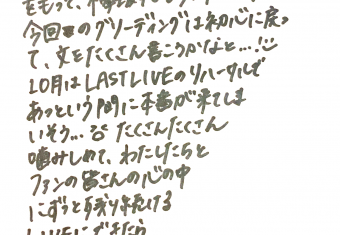 をもって、
今回のグリーディングは初心に戻っ
て、文をたくさん書こうかなと…!
10月はLASTLIVEのリハーサルで
あっという間に本番が来てしま
いそう… たくさんたくさん
噛みしめて、わたしたちと
ファンの皆さんの心の中
にずっと残り続ける
LIVEにできたら